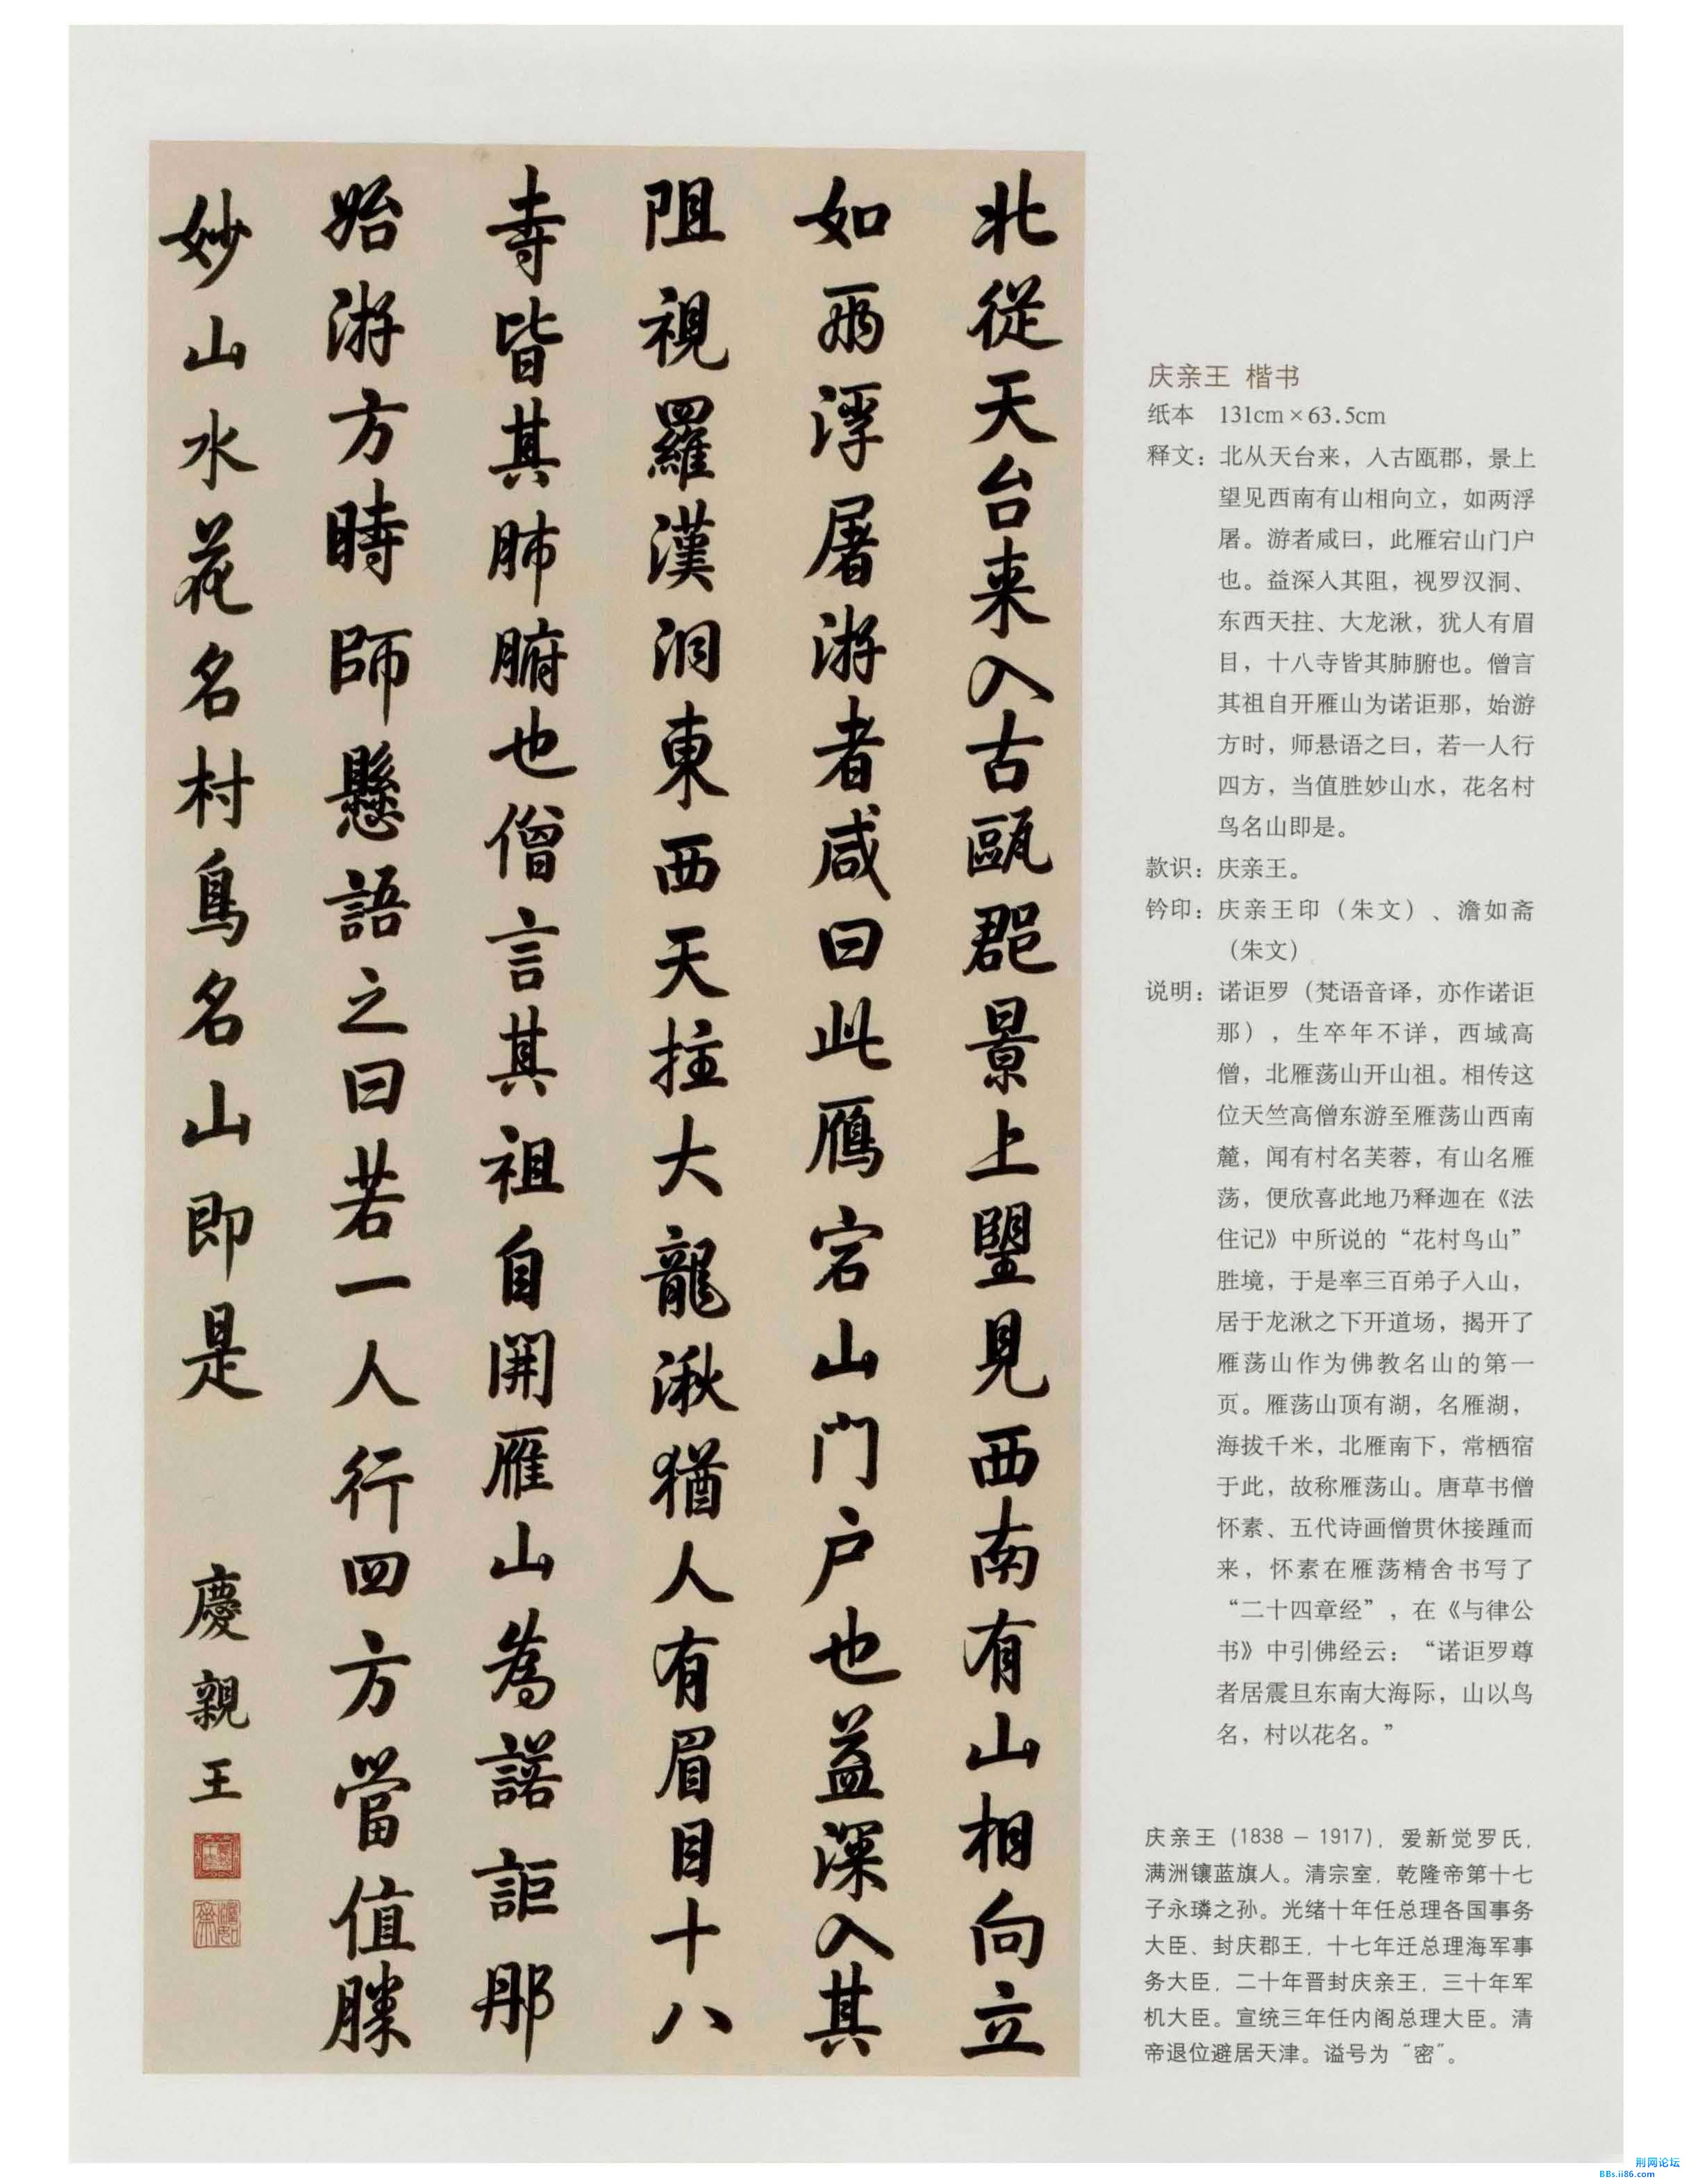 北從天台来入古甌郡景上朢見西南有山相向立
如兩浮屠游者咸曰此鴈宕山门户也益深入其
阻視羅漢洞東西天拄大龍湫猶人有眉目十八
寺皆其肺腑也僧言其祖自開雁山為諾詎那
始游方時師懸語之曰若一人行四方當值勝
妙山水花名村鳥名山即是
慶親王
庆亲王 楷书
纸本 131cm×63.5cm
释文：北从天台来，入古瓯郡，景上
望见西南有山相向立，如两浮
屠。游者咸曰，此雁宕山门户
也。益深入其阻，视罗汉洞、
东西天拄、大龙湫，犹人有眉
目，十八寺皆其肺腑也。僧言
其祖自开雁山为诺讵那，始游
方时，师悬语之曰，若一人行
四方，当值胜妙山水，花名村
鸟名山即是。
款识：庆亲王。
钤印：庆亲王印（朱文）、澹如斋
（朱文）
说明：诺讵罗（梵语音译，亦作诺讵
那），生卒年不详，西域高
僧，北雁荡山开山祖。相传这
位天竺高僧东游至雁荡山西南
麓，闻有村名芙蓉，有山名雁
荡，便欣喜此地乃释迦在《法
住记》中所说的“花村鸟山”
胜境，于是率三百弟子入山，
居于龙湫之下开道场，揭开了
雁荡山作为佛教名山的第一
页。雁荡山顶有湖，名雁湖，
海拔千米，北雁南下，常栖宿
于此，故称雁荡山。唐草书僧
怀素、五代诗画僧贯休接踵而
来，怀素在雁荡精舍书写了
“二十四章经”，在《与律公
书》中引佛经云：“诺讵罗尊
者居震旦东南大海际，山以鸟
名，村以花名。”
庆亲王（1838－1917），爱新觉罗氏，
满洲镶蓝旗人。清宗室，乾隆帝第十七
子永璘之孙。光绪十年任总理各国事务
大臣、封庆郡王，十七年迁总理海军事
务大臣，二十年晋封庆亲王，三十年军
机大臣。宣统三年任内阁总理大臣。清
帝退位避居天津。谥号为“密”。
荆网论坛
BBs.ii86.com